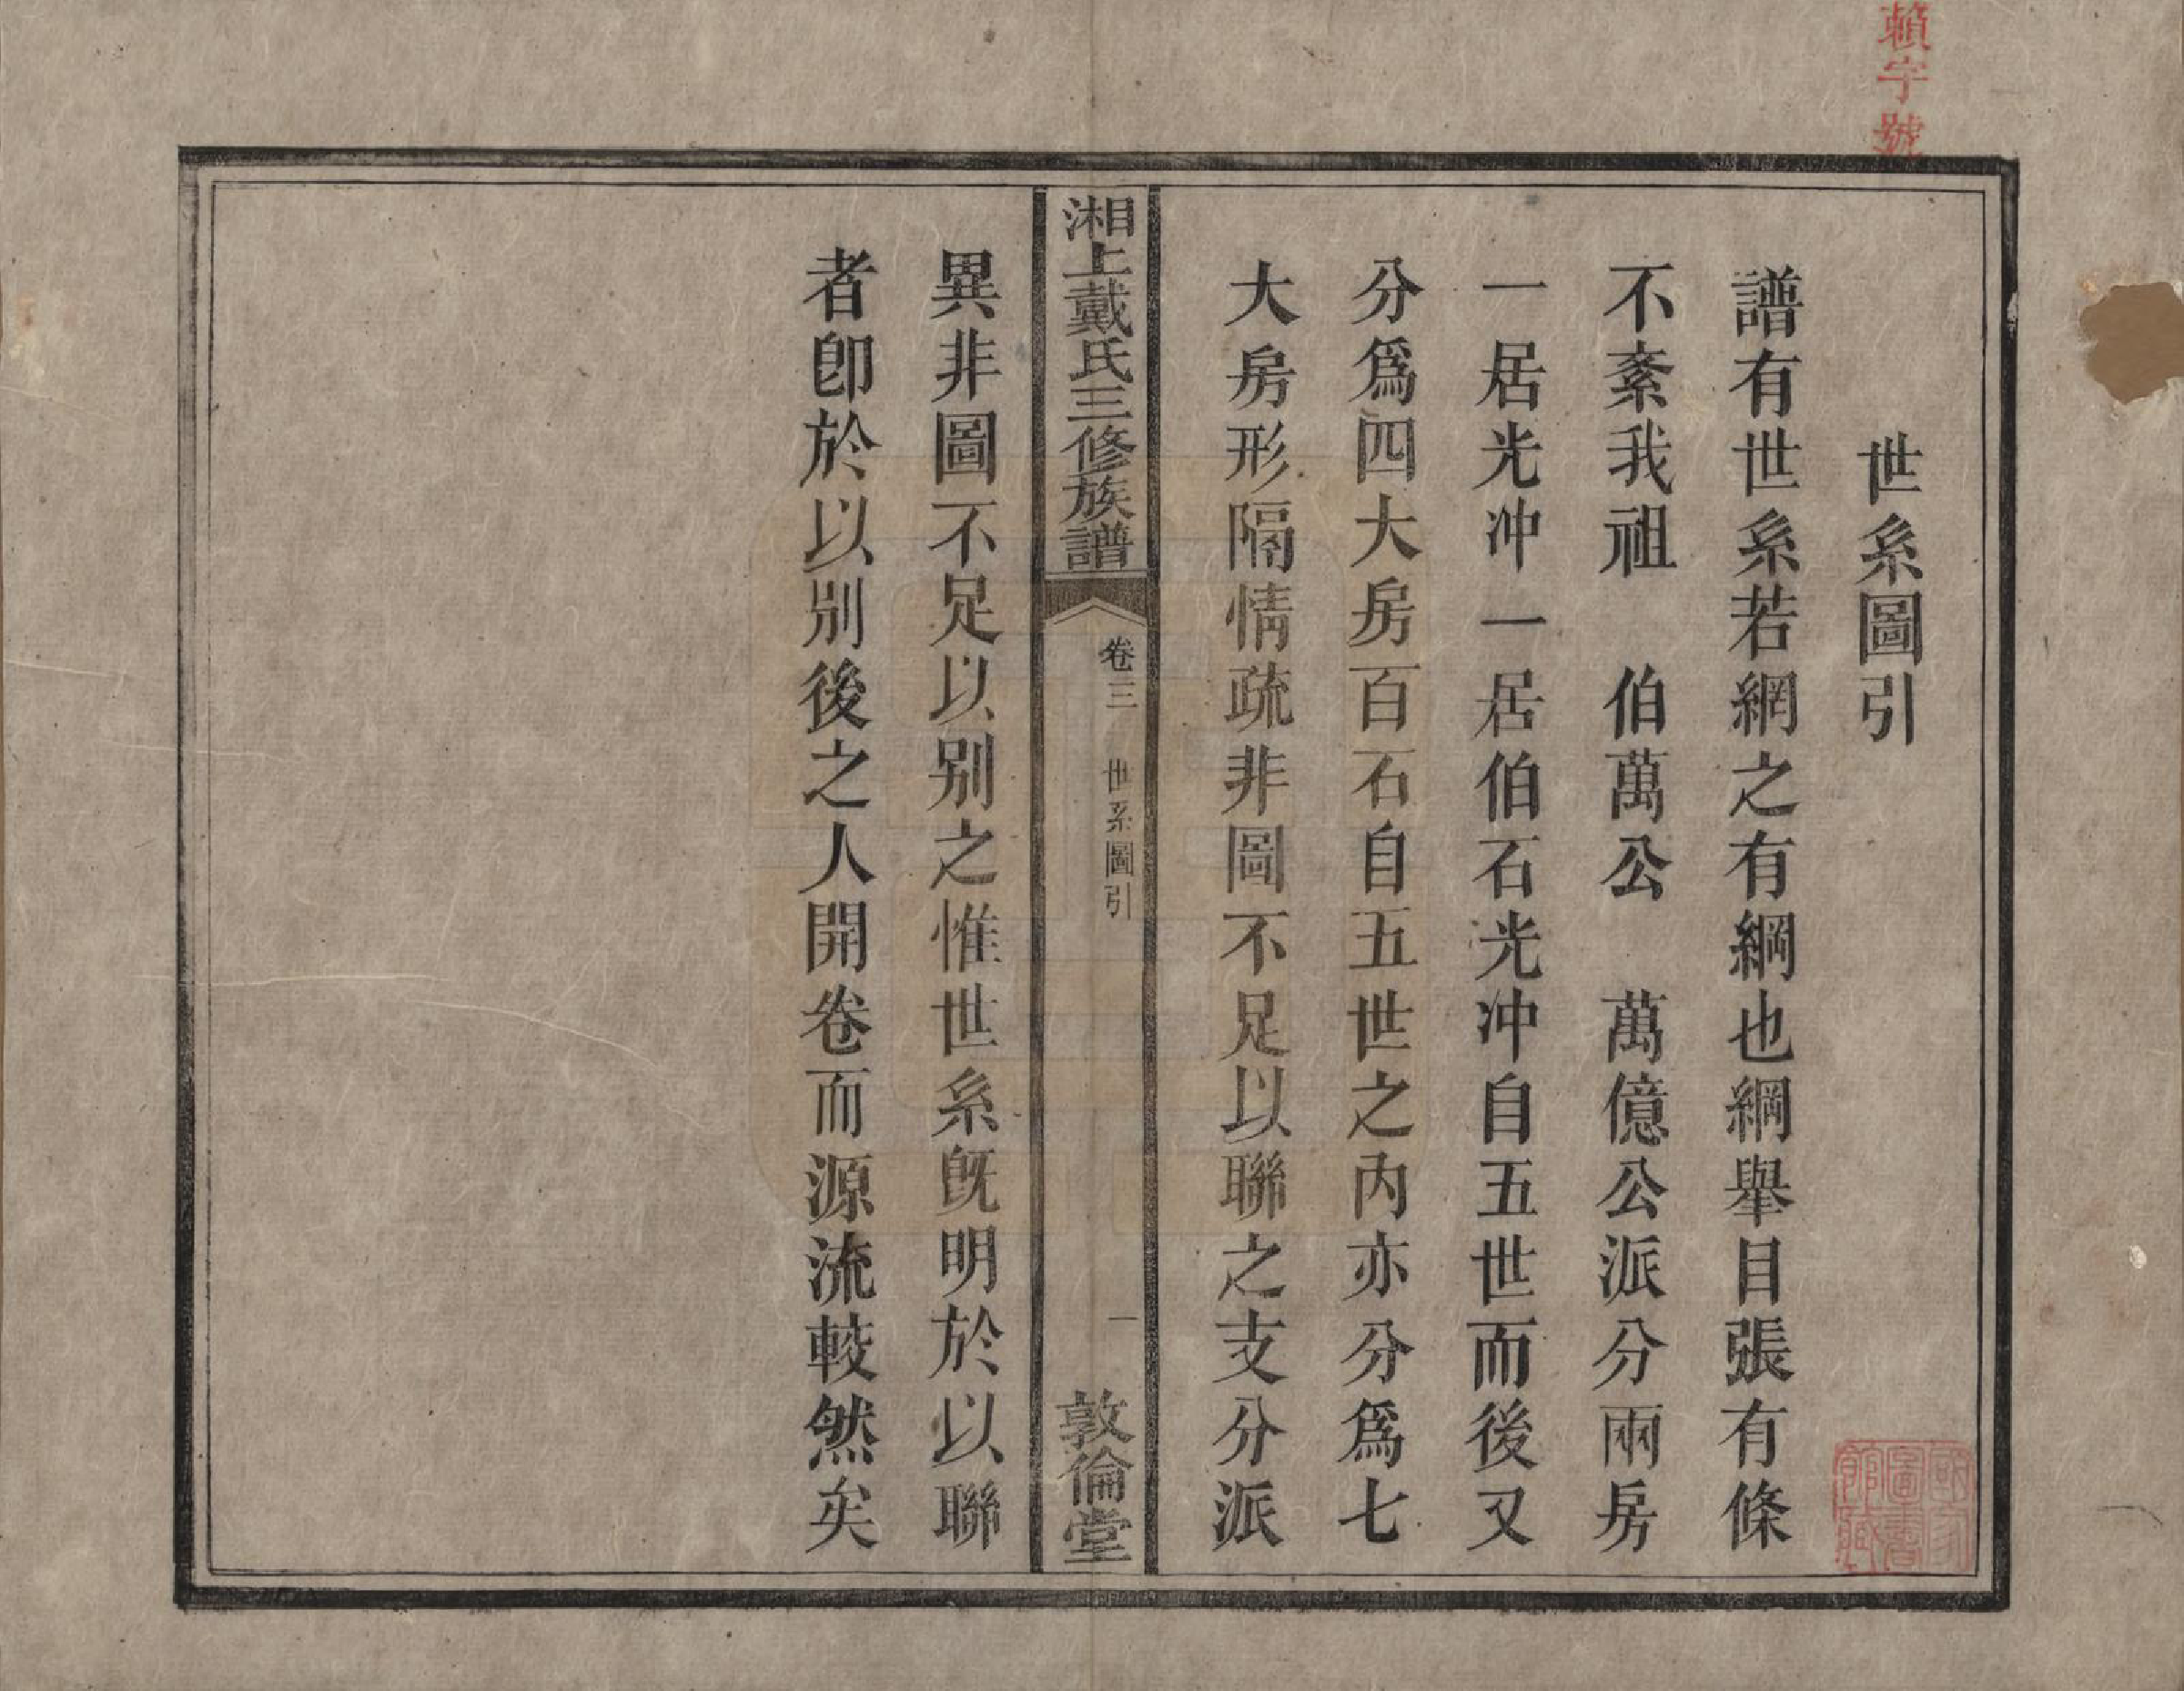 賴字號
世系圖引
譜有世系若網之有綱也綱舉目張有條
不紊我祖　伯萬公　萬億公派分兩房
一居光冲一居伯石光冲自五世而後又
分爲四大房百石自五世之內亦分爲七
大房形隔情疏非圖不足以聯之支分派
湘上戴氏三修族譜
卷三　世系圖引
一
敦倫堂
異非圖不足以別之惟世系旣明於以聯
者卽於以別後之人開卷而源流較然矣
國家圖書館藏